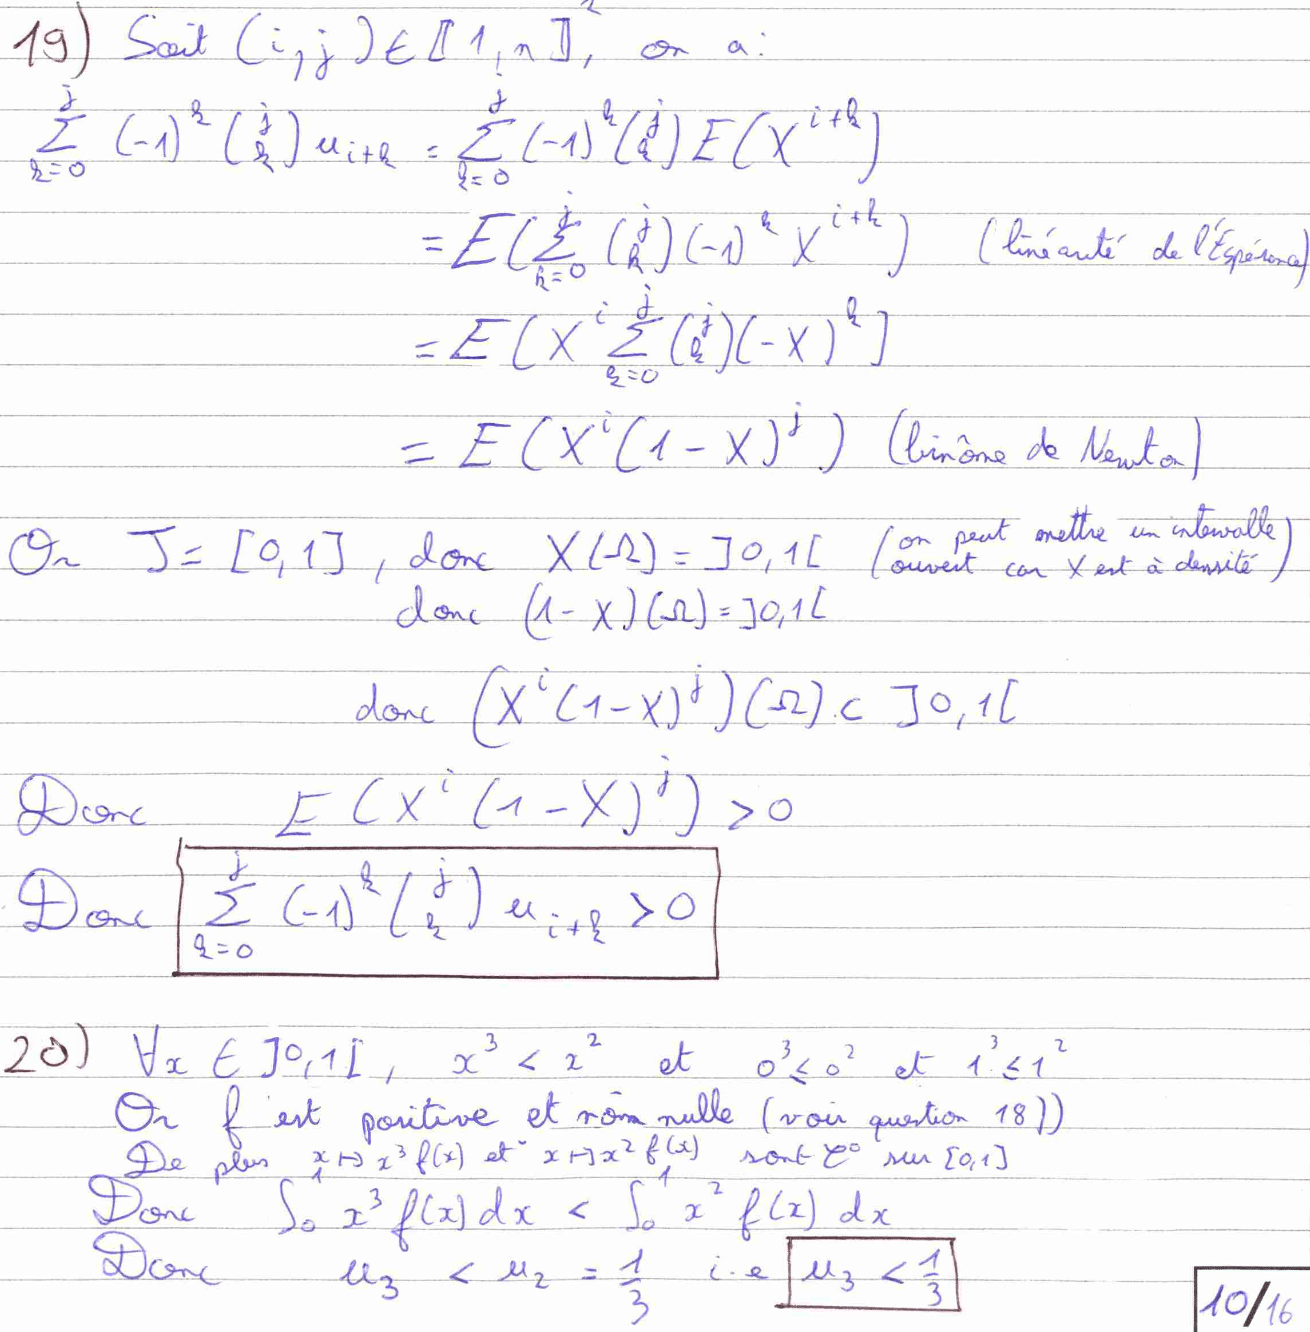 19) Soit (i,j) ∈ ⟦1,n⟧², on a:
∑_{k=0}^{j} (-1)^k (j k) u_{i+k} = ∑_{k=0}^{j} (-1)^k (j k) E(X^{i+k})
= E(∑_{k=0}^{j} (j k) (-1)^k X^{i+k}) (linéarité de l'Espérance)
= E(X^i ∑_{k=0}^{j} (j k) (-X)^k]
= E(X^i (1-X)^j) (binôme de Newton)
Or J = [0,1], donc X(Ω) = ]0,1[ (on peut mettre un intervalle
ouvert car X est à densité)
donc (1-X)(Ω) = ]0,1[
donc (X^i (1-X)^j)(Ω) ⊂ ]0,1[
Donc E(X^i (1-X)^j) > 0
Donc ∑_{k=0}^{j} (-1)^k (j k) u_{i+k} > 0
20) ∀x ∈ ]0,1[, x³ < x² et 0³ ≤ 0² et 1³ ≤ 1²
Or f est positive et non nulle (voir question 18))
De plus x ↦ x³ f(x) et x ↦ x² f(x) sont C⁰ sur [0,1]
Donc ∫₀¹ x³ f(x) dx < ∫₀¹ x² f(x) dx
Donc u₃ < u₂ = 1/3 i.e u₃ < 1/3
10/16